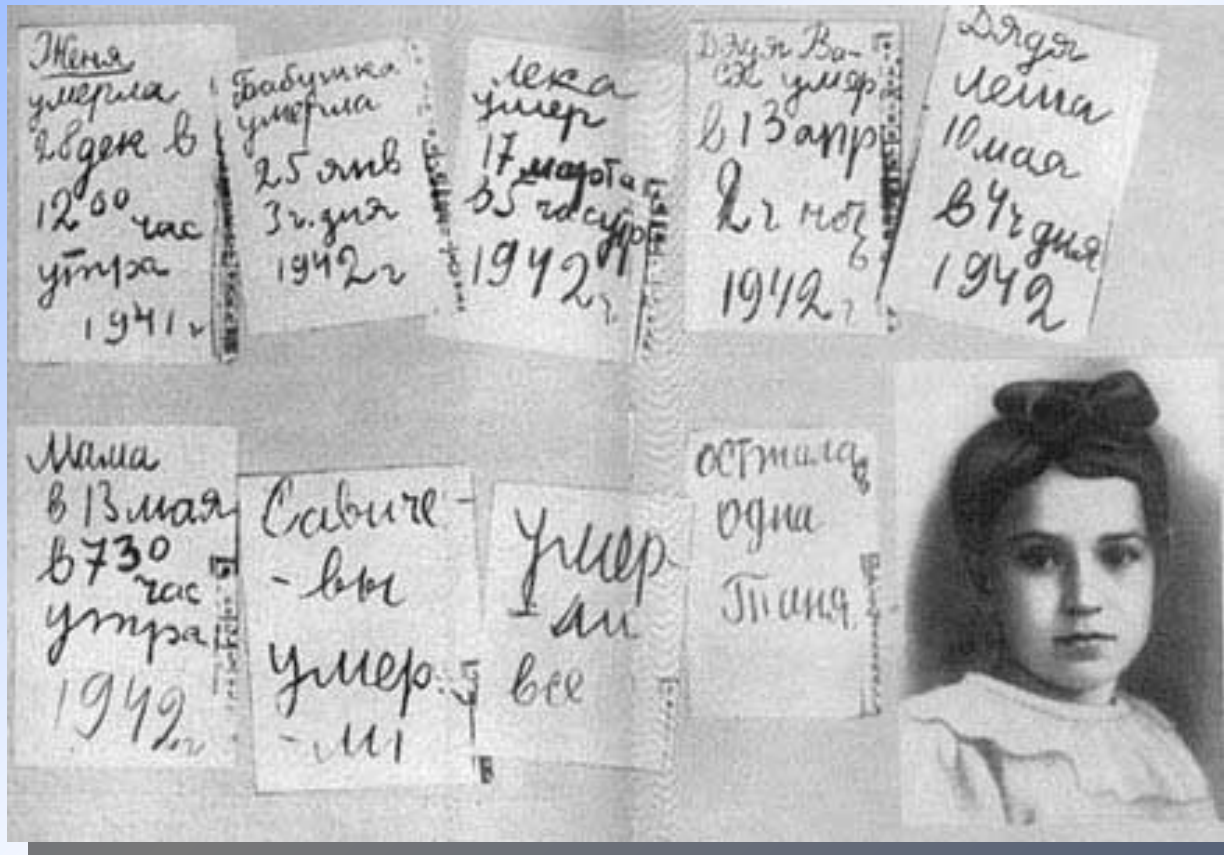 Женя
умерла
28 дек в
12 00 час
утра
1941 г
Бабушка
умерла
25 янв
3 ч. дня
1942 г
Лека
умер
17 марта
в 5 час утр
1942 г.
Дядя Ва-
ся умер
в 13 апр
2 ч ноч
ь
1942 г
Дядя
Леша
10 мая
в 4 ч дня
1942
Мама
в 13 мая
в 7 30
час
утра
1942 г
Савиче-
-вы
умер-
-ли
Умер-
-ли
все
Осталась
одна
Таня.